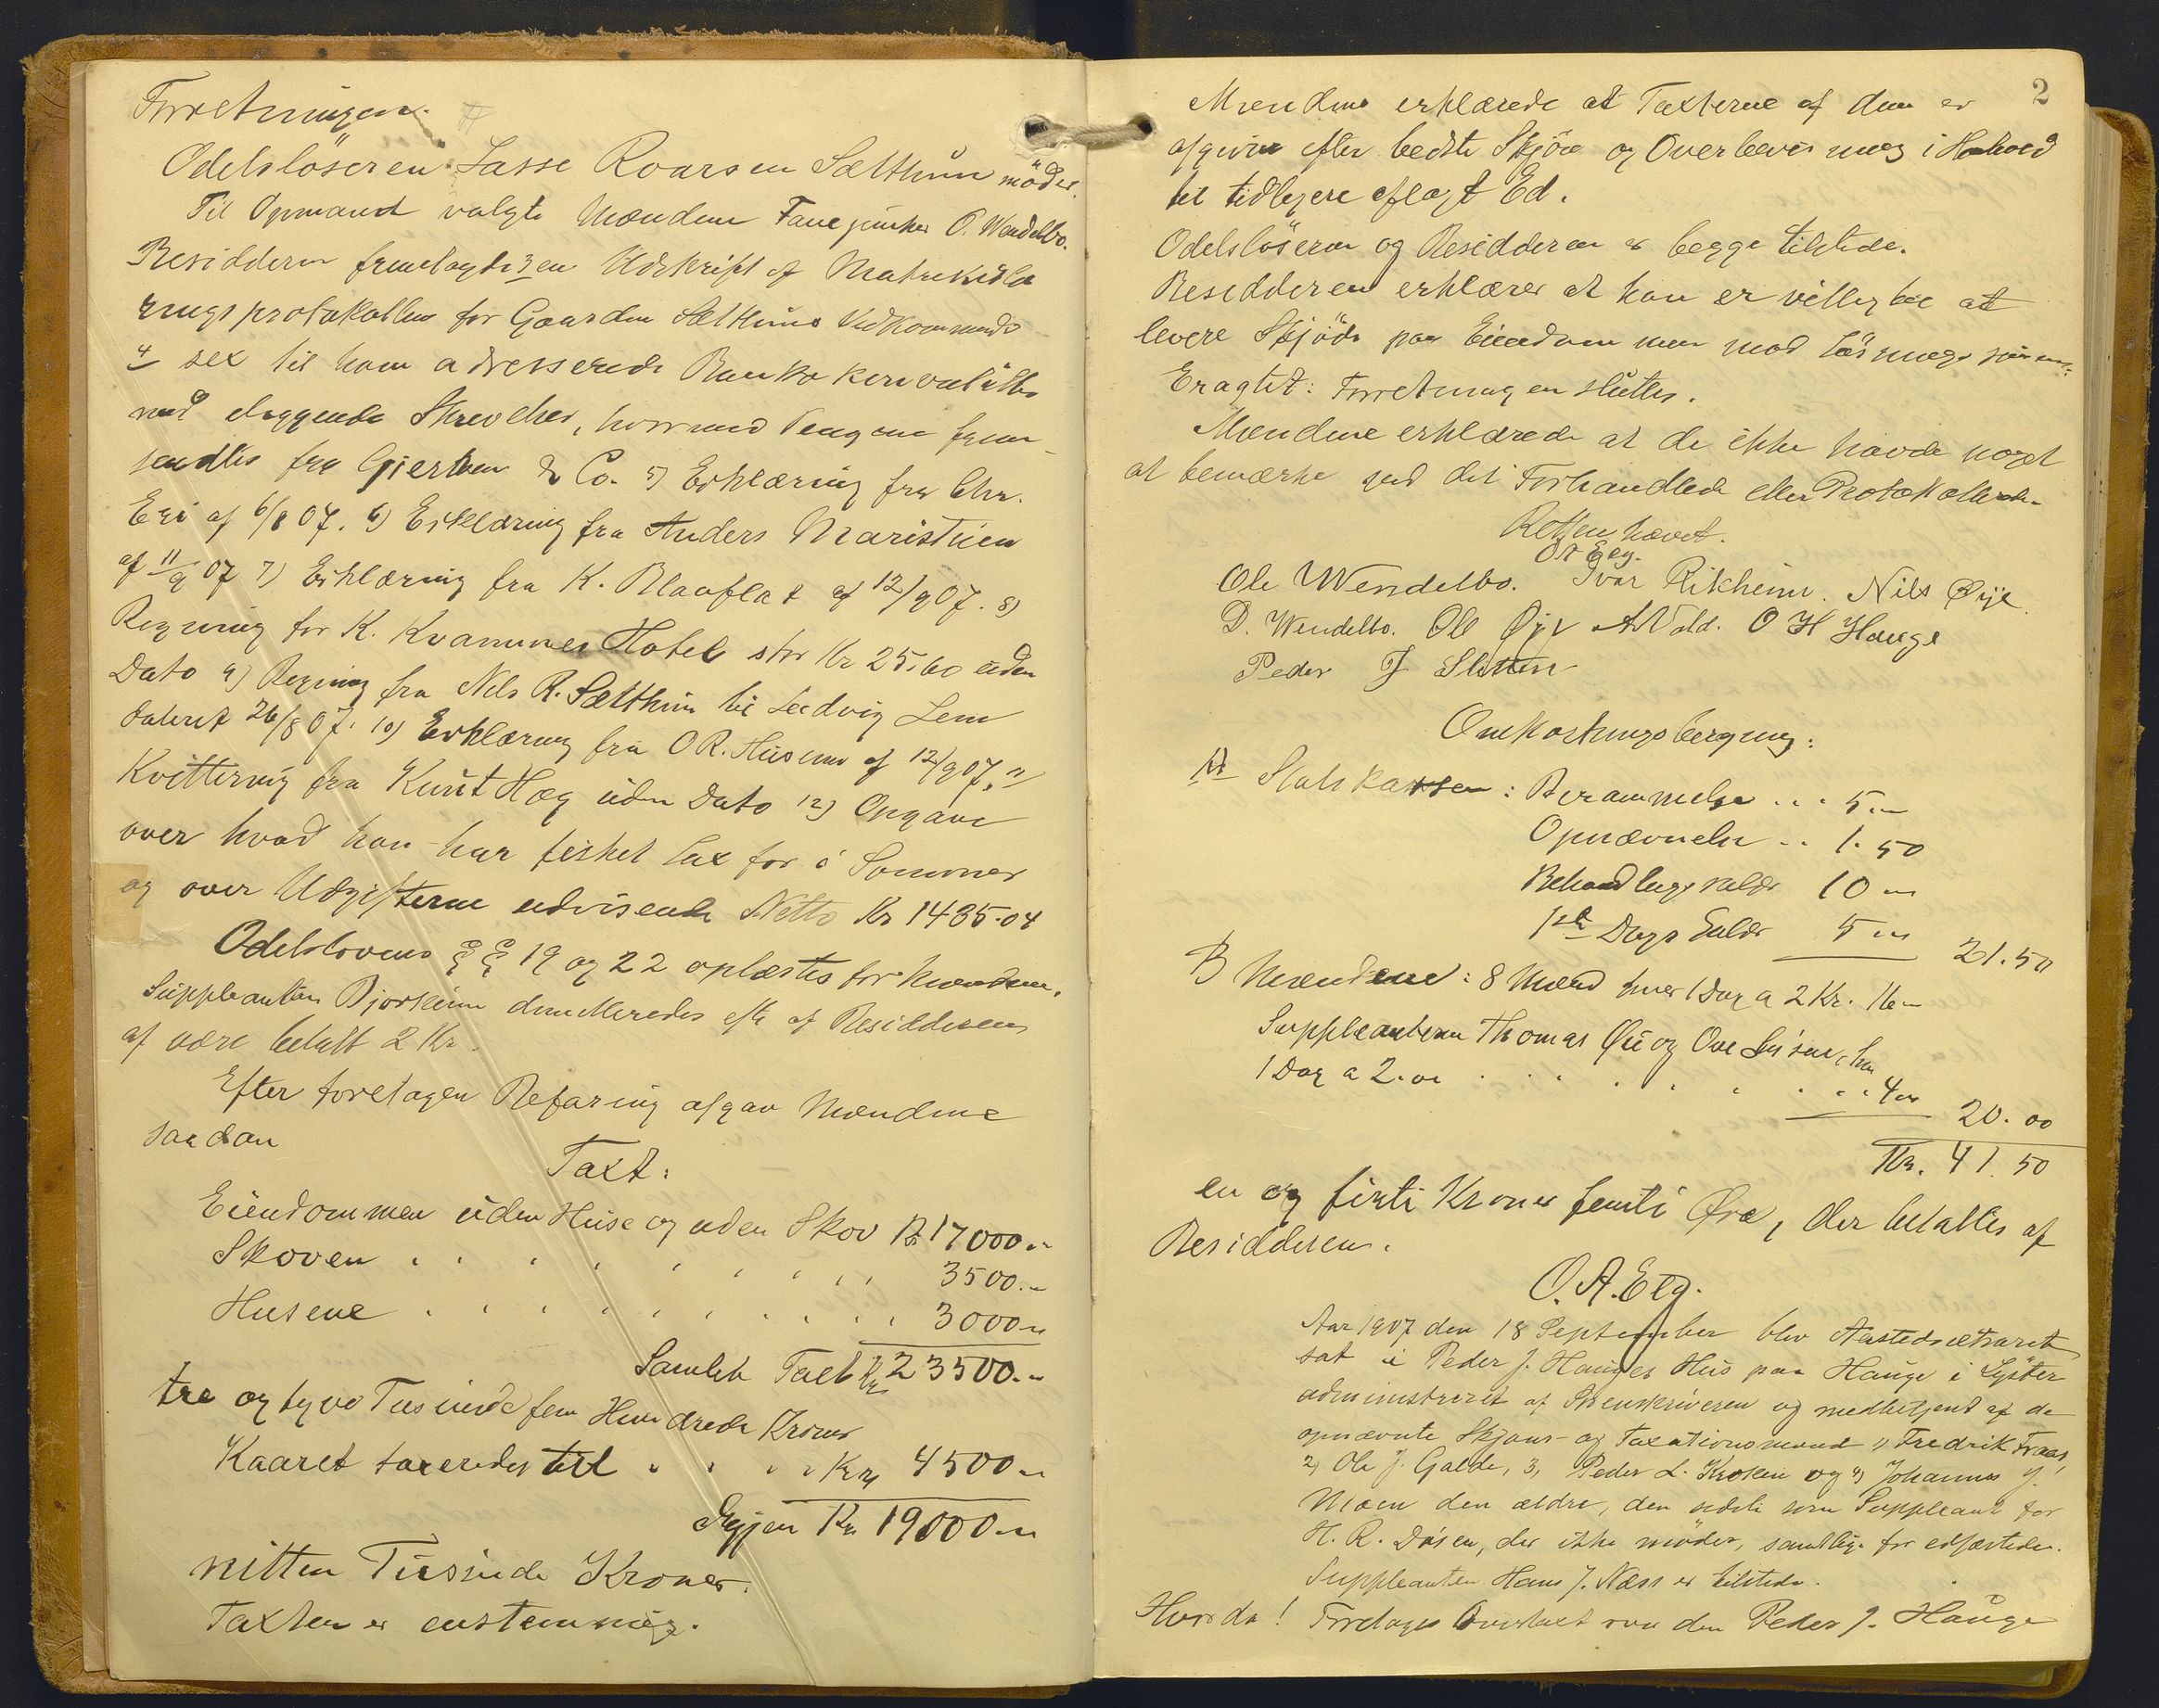 Forretningen.
Odelsløseren Lasse Roarsen Sælthun møder.
Til Opmand valgte Mændene Fanejunker O. Wendelbo.
Besidderen fremlagde 3 en Udskrift af Matrikule
ringsprotokollen for Gaarden Sælthuns Vedkommende
4 sex til ham adresserede Bankokonvolutter
med iliggende Skrivelser, hvormed Pengene frem
sendtes fra Gjertsen & Co. 5) Erklæring fra Chr.
Eri af 6/8 07. 6) Erklæring fra Anders Maristuen
af 11/9 07 7) Erklæring fra K. Blaaflat af 12/9 07. 8)
Regning for K. Kvammes Hotel stor Kr 25.60 uden
Dato 9) Regning fra Nils R. Sælthun til Ludvig Lem
dateret 26/8 07. 10) Erklæring fra O R. Husum af 12/9 07. 11
Kvittering fra Knut Hæg uden Dato 12) Opgave
over hvad han har fisket Lax for i Sommer
og over Udgifterne udvisende Netto Kr 1435.04
Odelslovens §§ 19 og 22 oplæstes for Mændene.
Suppleanten Bjørkum demitteredes efter af Besidderen
af være betalt 2 Kr.
Efter foretagen Befaring afgav Mændene
saadan
Taxt:
Eiendommen uden Huse og uden Skov Kr 17000.-
Skoven . . . . . . . . 3500.-
Husene . . . . . . . . . 3000.-
Samlet Taxt Kr 23500.-
tre og tyve Tusinde fem Hundrede Kroner
Kaaret taxeredes til . . . . Kr 4500.-
Igjen Kr 19000.-
nitten Tusinde Kroner.
Taxten er enstemmig.
2
Mændene erklærede at Taxterne af dem er
afgivne efter bedste Skjøn og Overbevisning i Henhold
til tidligere aflagt Ed.
Odelsløseren og Besidderen er begge tilstede.
Besidderen erklærer at han er villig til at
levere Skjøde paa Eiendommen mod Løsnings
Eragtet: Forretningen sluttes.
Mændene erklærede at de ikke havde noget
at bemærke ved det Forhandlede eller Protokollerede.
Retten hævet.
O A Elg.
Ole Wendelbo. Ivar Rikheim. Nils Øije.
D. Wendelbo. Ole Øje A Vold. O H Hauge
Peder J Sletten
Omkostningsberegning:
A Statskassen: Berammelse . . . 5.-
Opnævnelse . . 1.50
Behandlingsgebyr 10.-
1ste Dags 5.- 21.50
B Mændene: 8 Mænd hver 1 Dag a 2 Kr. 16.-
Suppleanterne Thomas Øie og Ove hver
1 Dag a 2.00 . . . . . . . . . 4.00
20.00
Kr. 41.50
en og firti Kroner femti Øre, der betaltes af
Besidderen.
O. A. Elg.
Aar 1907 den 18 September blev Aastedsretten
sat i Peder J. Hauges Hus paa Hauge i Lyster
administreret af Sorenskriveren og medbetjent af de
opnævnte Skjøns- og Taxationsmænd 1, Fredrik Traas,
2, Ole J. Galde, 3, Peder L. Kroken og 4) Johannes J.
Moen den ældre, den sidste som Suppleant for
H. R. Døsen, der ikke møder, samtlige før edfæstede.
Suppleanten Hans J. Næss er tilstede.
Hvorda! Foretoges Overtaxt over den Peder J. Hauge